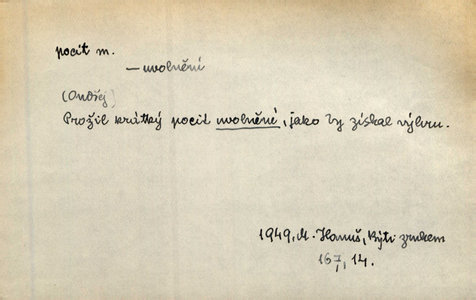 pocit m.
— uvolnění
(Ondřej)
Prožil krátký pocit uvolnění, jako by získal výhru.
1949, M. Hanuš,
167, 14.